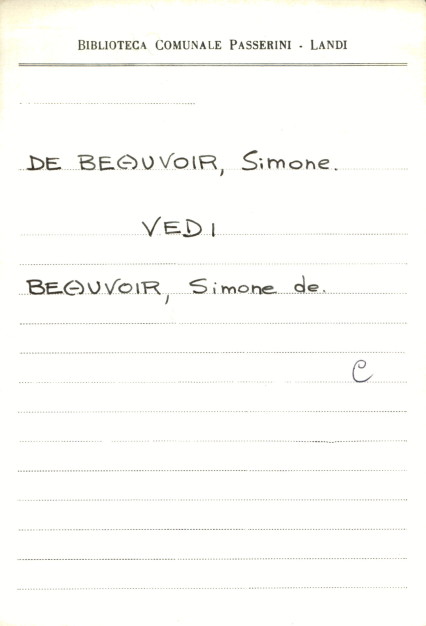 BIBLIOTECA COMUNALE PASSERINI - LANDI
DE BEAUVOIR, Simone.
VEDI
BEAUVOIR, Simone de.
C